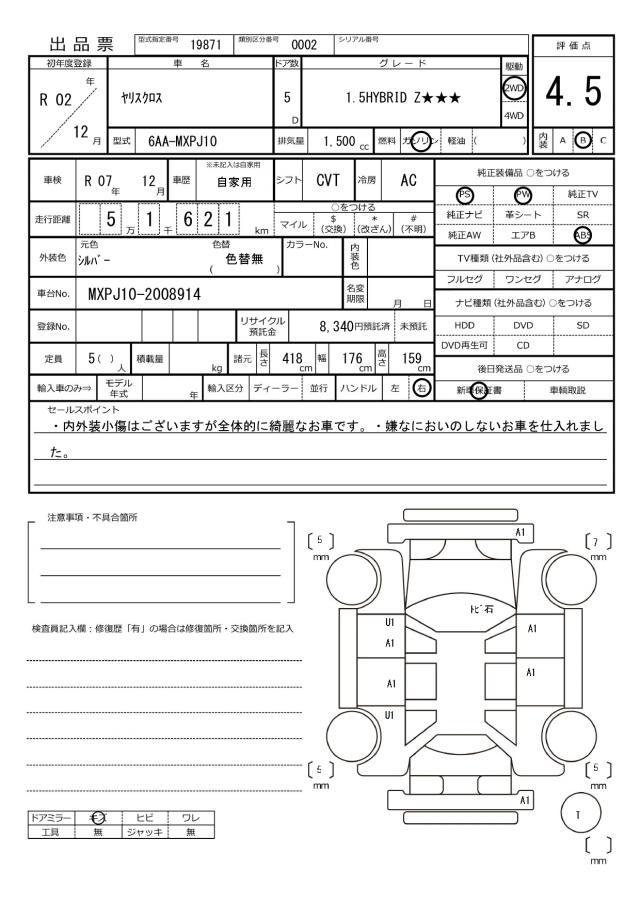 出品票
型式指定番号 19871 類別区分番号 0002 シリアル番号
評価点
4.5
初年度登録 車名 ドア数 グレード 駆動
R 02 年 12 月
ヤリスクロス 5 D 1.5HYBRID Z★★★ 2WD 4WD
型式 6AA-MXPJ10 排気量 1,500 cc 燃料 ガソリン 軽油 ( )
内装 A B C
車検 R 07 年 12 月 車歴 ※未記入は自家用 自家用 シフト CVT 冷房 AC
走行距離 5 万 1 千 6 2 1 km
○をつける
マイル $ (交換) * (改ざん) # (不明)
外装色 元色 シルバー 色替 色替無 ( ) カラーNo. 内装色
車台No. MXPJ10-2008914 名変期限 月 日
登録No. リサイクル預託金 8,340円預託済 未預託
定員 5 ( ) 人 積載量 kg 諸元 長さ 418 cm 幅 176 cm 高さ 159 cm
輸入車のみ⇒ モデル年式 年 輸入区分 ディーラー 並行 ハンドル 左 右
純正装備品 ○をつける
PS PW 純正TV
純正ナビ 革シート SR
純正AW エアB ABS
TV種類 (社外品含む) ○をつける
フルセグ ワンセグ アナログ
ナビ種類 (社外品含む) ○をつける
HDD DVD SD
DVD再生可 CD
後日発送品 ○をつける
新車保証書 車輌取説
セールスポイント
・内外装小傷はございますが全体的に綺麗なお車です。・嫌なにおいのしないお車を仕入れまし
た。
注意事項・不具合箇所
検査員記入欄：修復歴「有」の場合は修復箇所・交換箇所を記入
ドアミラー キズ ヒビ ワレ
工具 無 ジャッキ 無
A1
5 mm
7 mm
トビ石
U1
A1
A1
A1
A1
U1
5 mm
5 mm
A1
T
mm